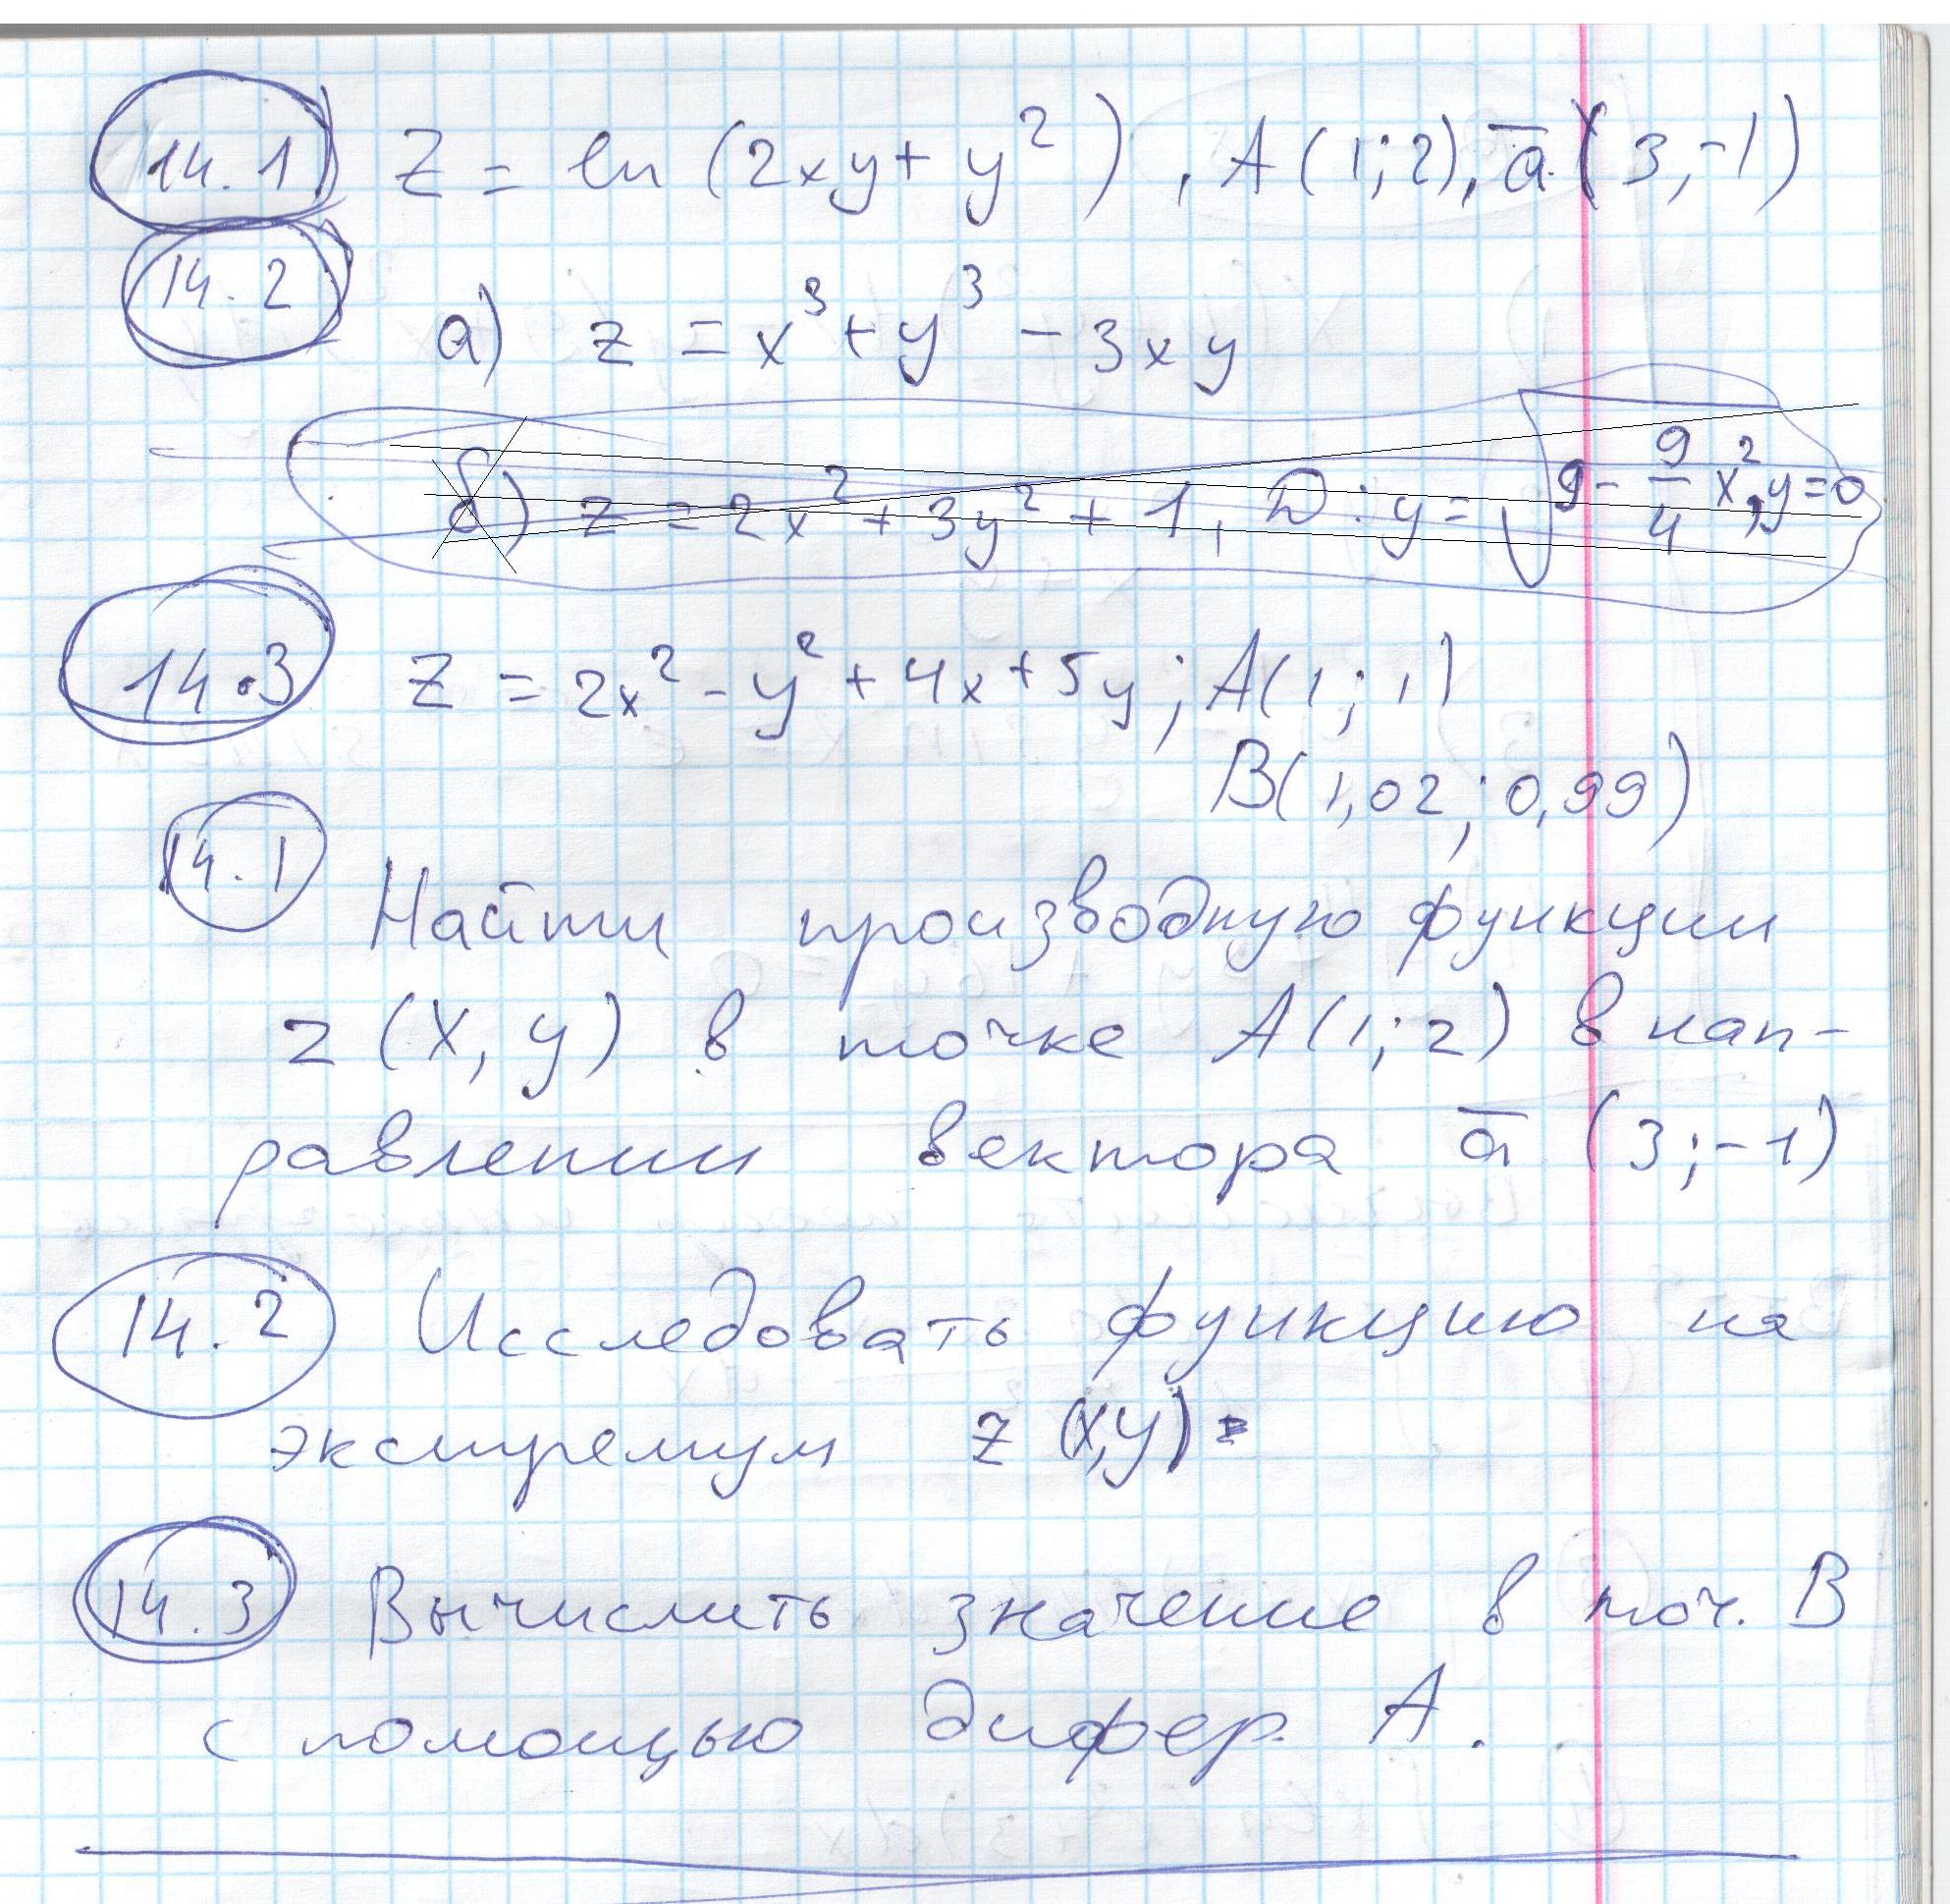 14.1 Z = ln (2xy + y²), A(1;2), a̅ (3,-1)
14.2
а) z = x³ + y³ - 3xy
б) z = 2x² + 3y² + 1, D: y = √(9 - 9/4 x²), y=0
14.3 Z = 2x² - y² + 4x + 5y; A(1;1)
B(1,02; 0,99)
14.1 Найти производную функции
z (x, y) в точке A(1;2) в нап-
равлении вектора a̅ (3;-1)
14.2 Исследовать функцию на
экстремум z (x,y) =
14.3 Вычислить значение в точ. В
с помощью дифер. А.